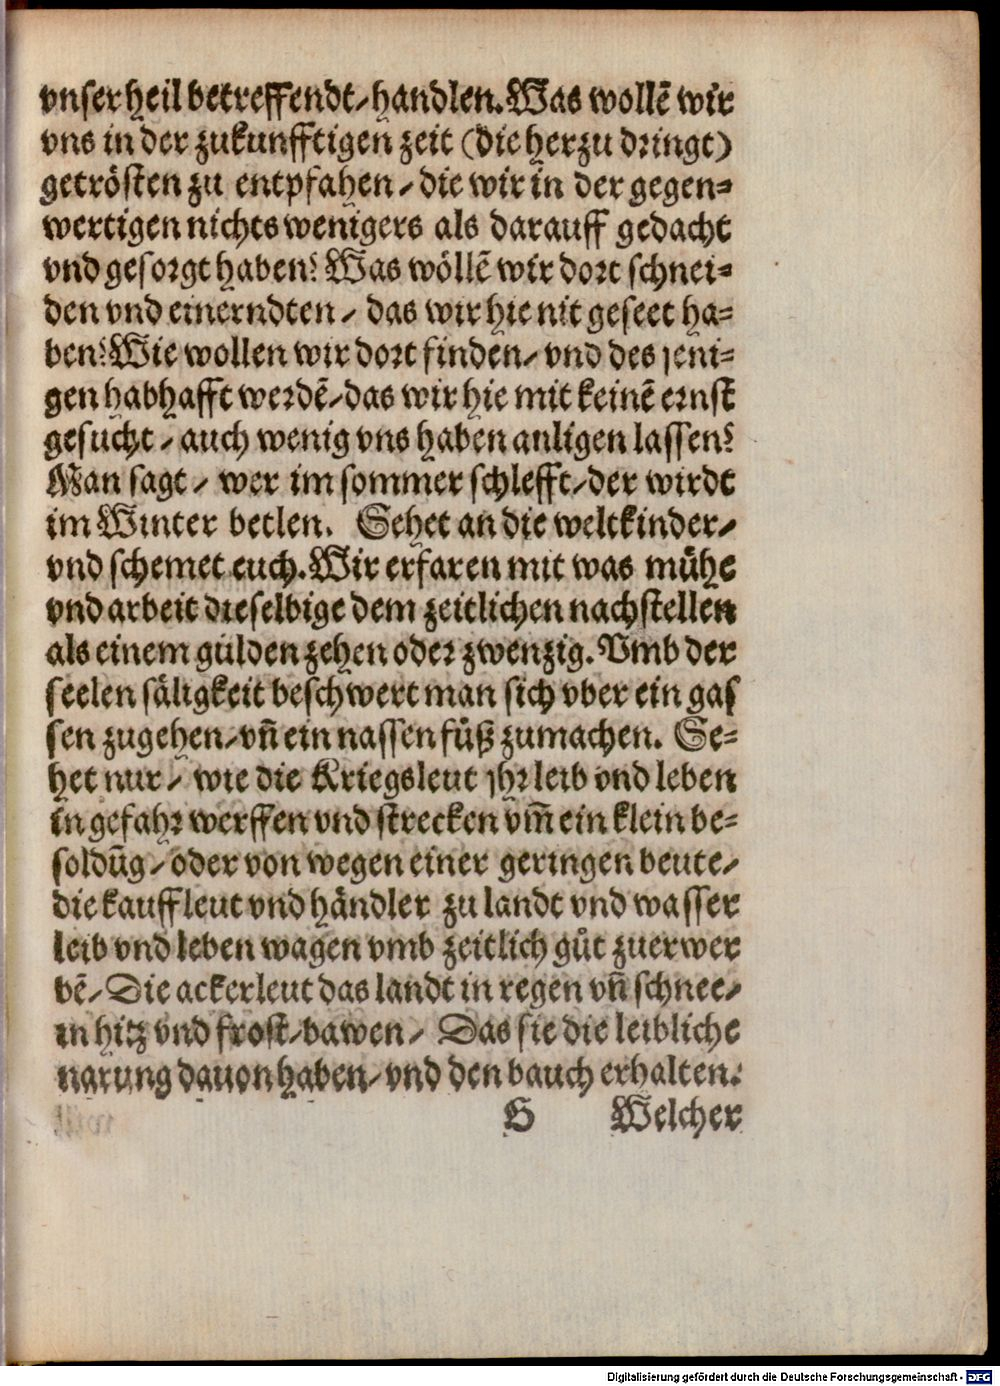 vnser heil betreffendt / handlen. Was wollē wir
vns in der zukunfftigen zeit (die herzu dringt)
getrösten zu entpfahen / die wir in der gegen⸗
wertigen nichts wenigers als darauff gedacht
vnd gesorgt haben? Was wöllē wir dort schnei⸗
den vnd einerndten / das wir hie nit geseet ha⸗
ben? Wie wollen wir dort finden / vnd des jeni⸗
gen habhafft werdē / das wir hie mit keinē ernst
gesucht / auch wenig vns haben anligen lassen?
Man sagt / wer im sommer schlefft / der wirdt
im Winter betlen. Sehet an die weltkinder /
vnd schemet euch. Wir erfaren mit was mühe
vnd arbeit dieselbige dem zeitlichen nachstellen
als einem gülden zehen oder zwenzig. Vmb der
seelen säligkeit beschwert man sich vber ein gas
sen zugehen / vñ ein nassen füß zumachen. Se⸗
het nur / wie die Kriegsleut jhr leib vnd leben
in gefahr werffen vnd strecken vm̄ ein klein be⸗
soldūg / oder von wegen einer geringen beute /
die kauffleut vnd händler zu landt vnd wasser
leib vnd leben wagen vmb zeitlich gůt zuerwer
bē / Die ackerleut das landt in regen vñ schnee /
in hitz vnd frost / bawen / Das sie die leibliche
narung dauon haben / vnd den bauch erhalten.
H Welcher
Digitalisierung gefördert durch die Deutsche Forschungsgemeinschaft - DFG